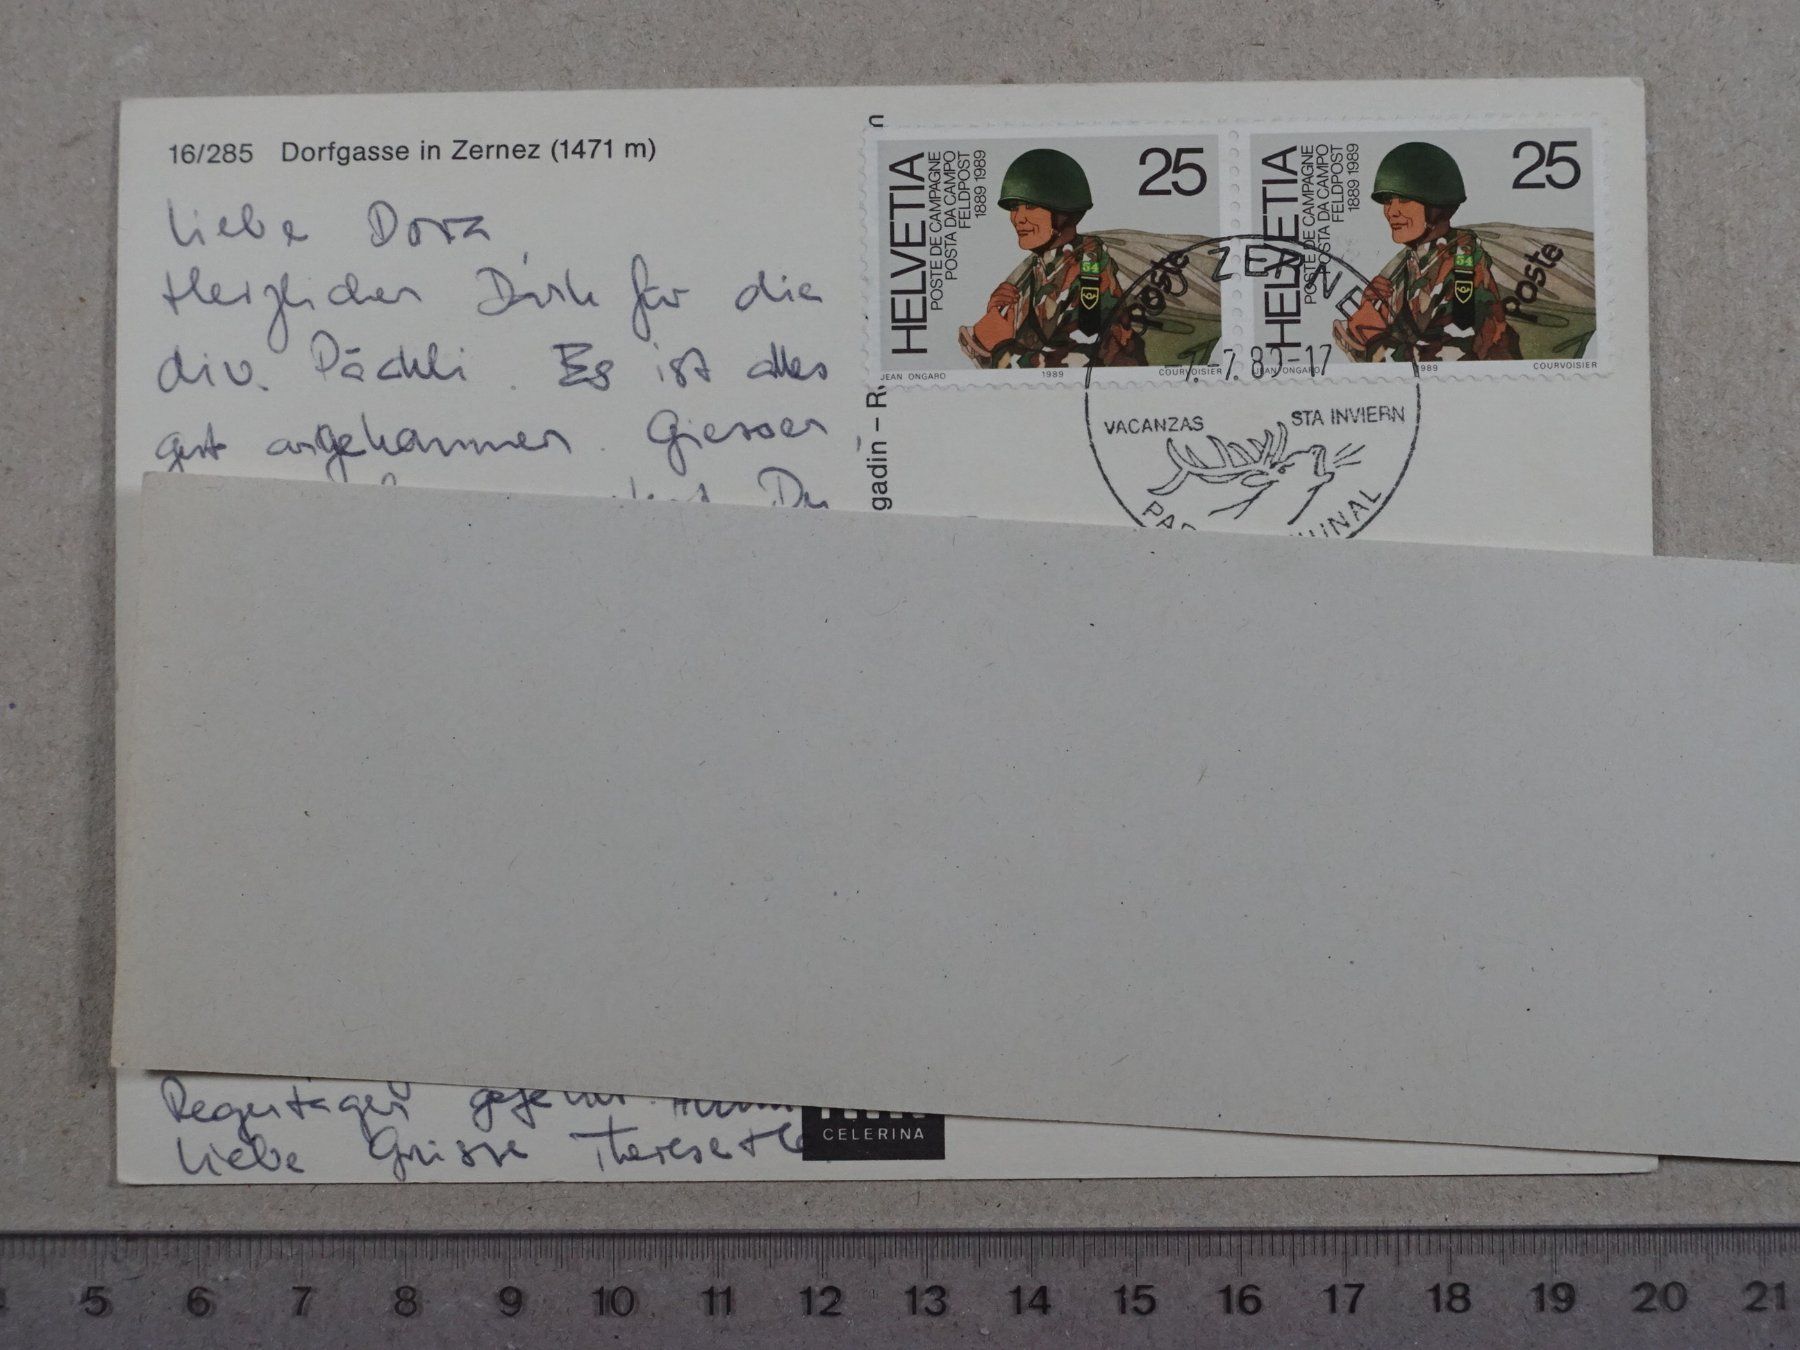 16/285 Dorfgasse in Zernez (1471 m)
Liebe Dora
Herzlichen Dank für die
div. Päckli. Es ist alles
gut angekommen. Giessen
Du
Regentagen
Liebe Grüsse Therese +
gadin – R
n
HELVETIA
POSTE DE CAMPAGNE
POSTA DA CAMPO
FELDPOST
1889 1989
25
54
poste
JEAN ONGARO 1989 COURVOISIER
HELVETIA
POSTE DE CAMPAGNE
POSTA DA CAMPO
FELDPOST
1889 1989
25
54
poste
JEAN ONGARO 1989 COURVOISIER
ZERNEZ
-7.-7.89-17
VACANZAS STA INVIERN
CELERINA
5 6 7 8 9 10 11 12 13 14 15 16 17 18 19 20 21